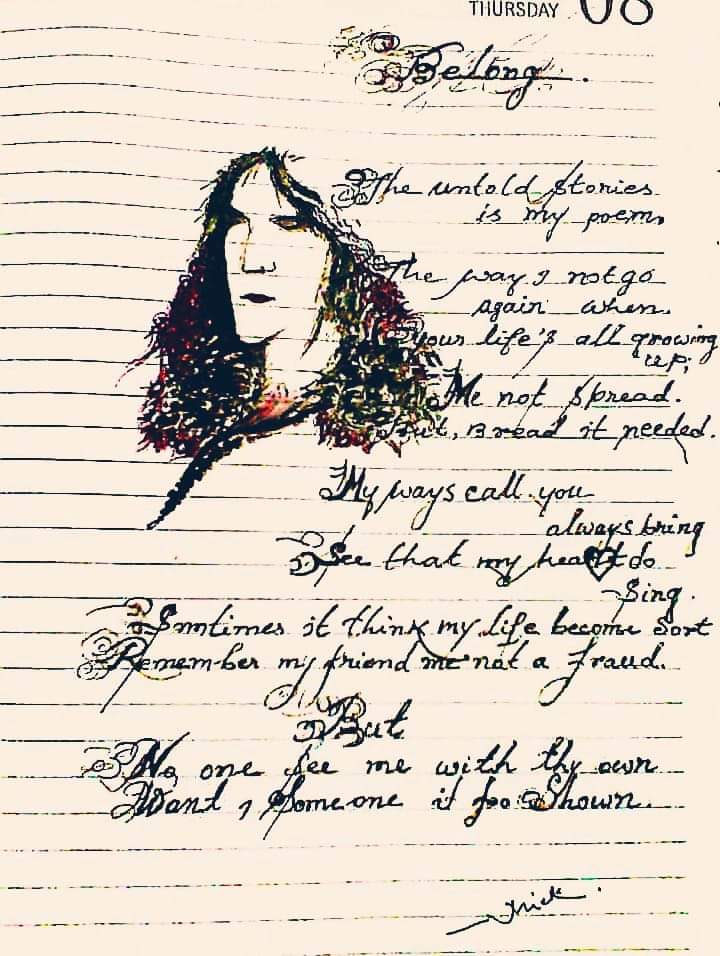 THURSDAY 08
Belong.
The untold stories
is my poem,
The way I not go
again when.
your life's all growing
up;
Me not spread.
But, Bread it needed.
My ways call you
always bring
See that my heart do
Sing.
Somtimes it think my life become Sort
Remember my friend me not a fraud.
But
No one see me with thy own
Want I Someone it too Shown.